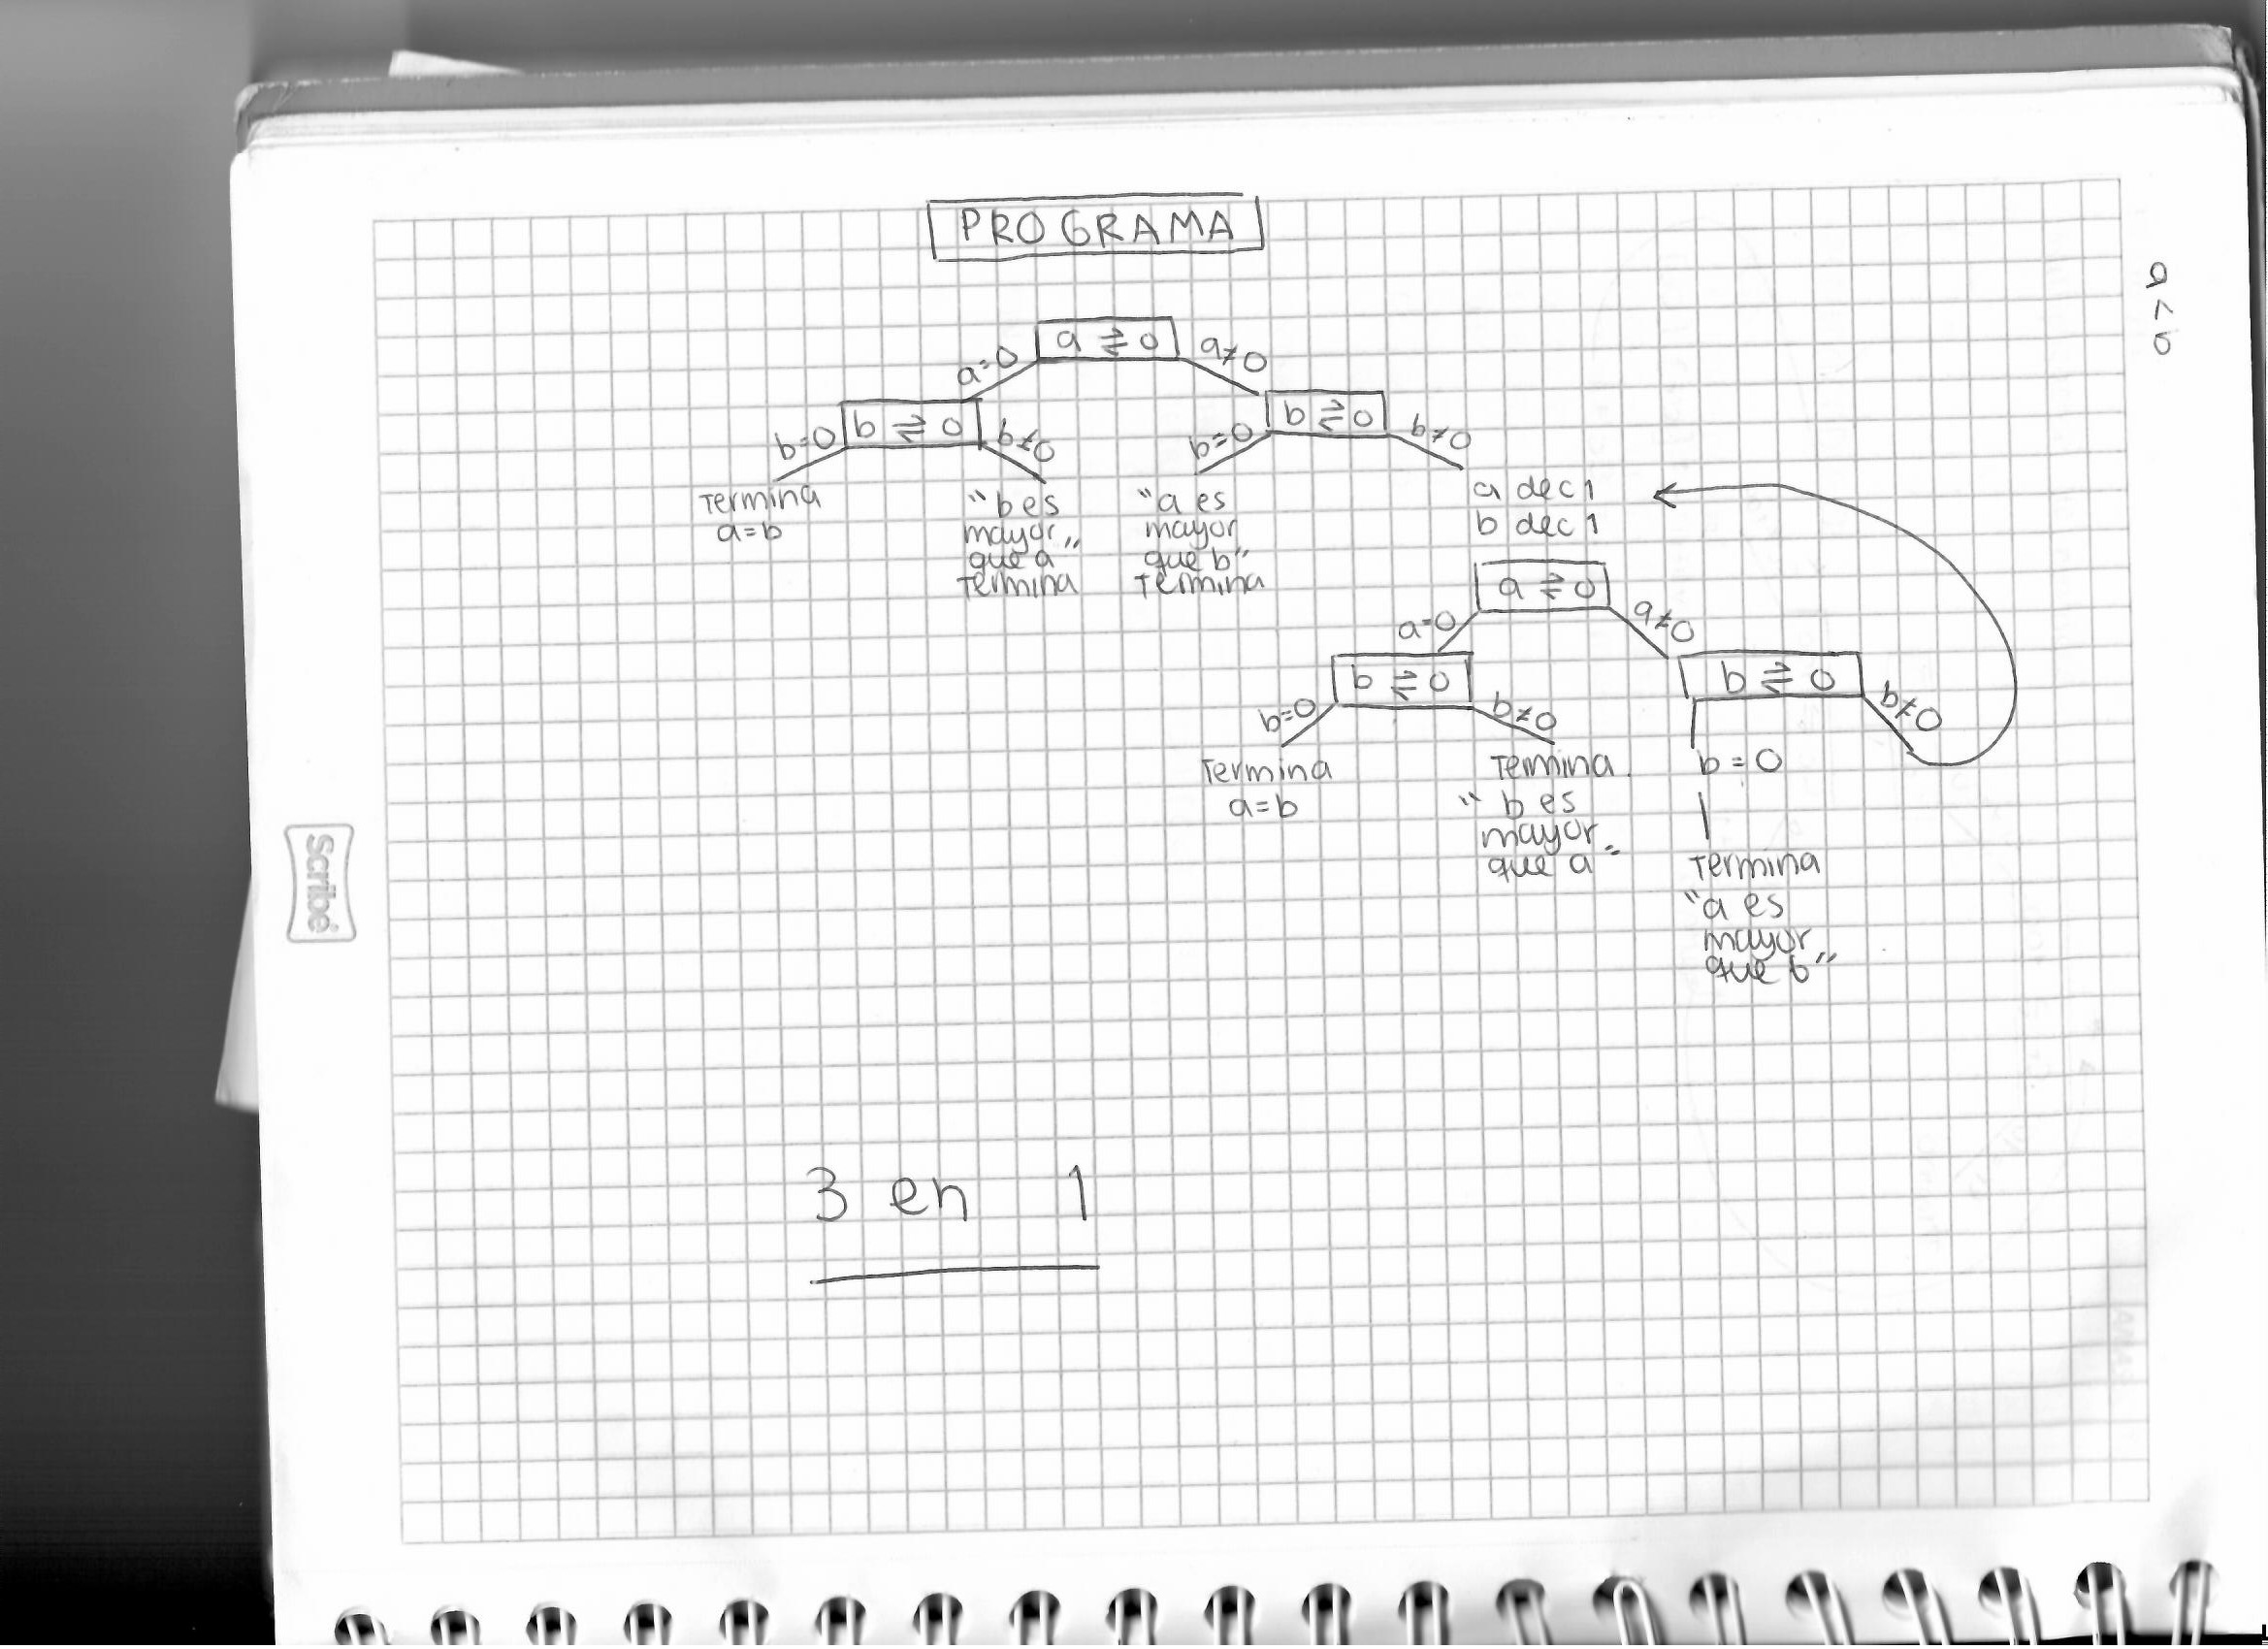 PROGRAMA
a < b
a ⇄ 0
a=0
a≠0
b ⇄ 0
b ⇄ 0
b=0
b≠0
b=0
b≠0
Termina
a=b
"b es
mayor"
que a
Termina
"a es
mayor
que b"
Termina
a dec 1
b dec 1
a ⇄ 0
a=0
a≠0
b ⇄ 0
b ⇄ 0
b=0
b≠0
b≠0
Termina
a=b
Termina
"b es
mayor
que a"
b = 0
Termina
"a es
mayor
que b"
Scribe
3 en 1